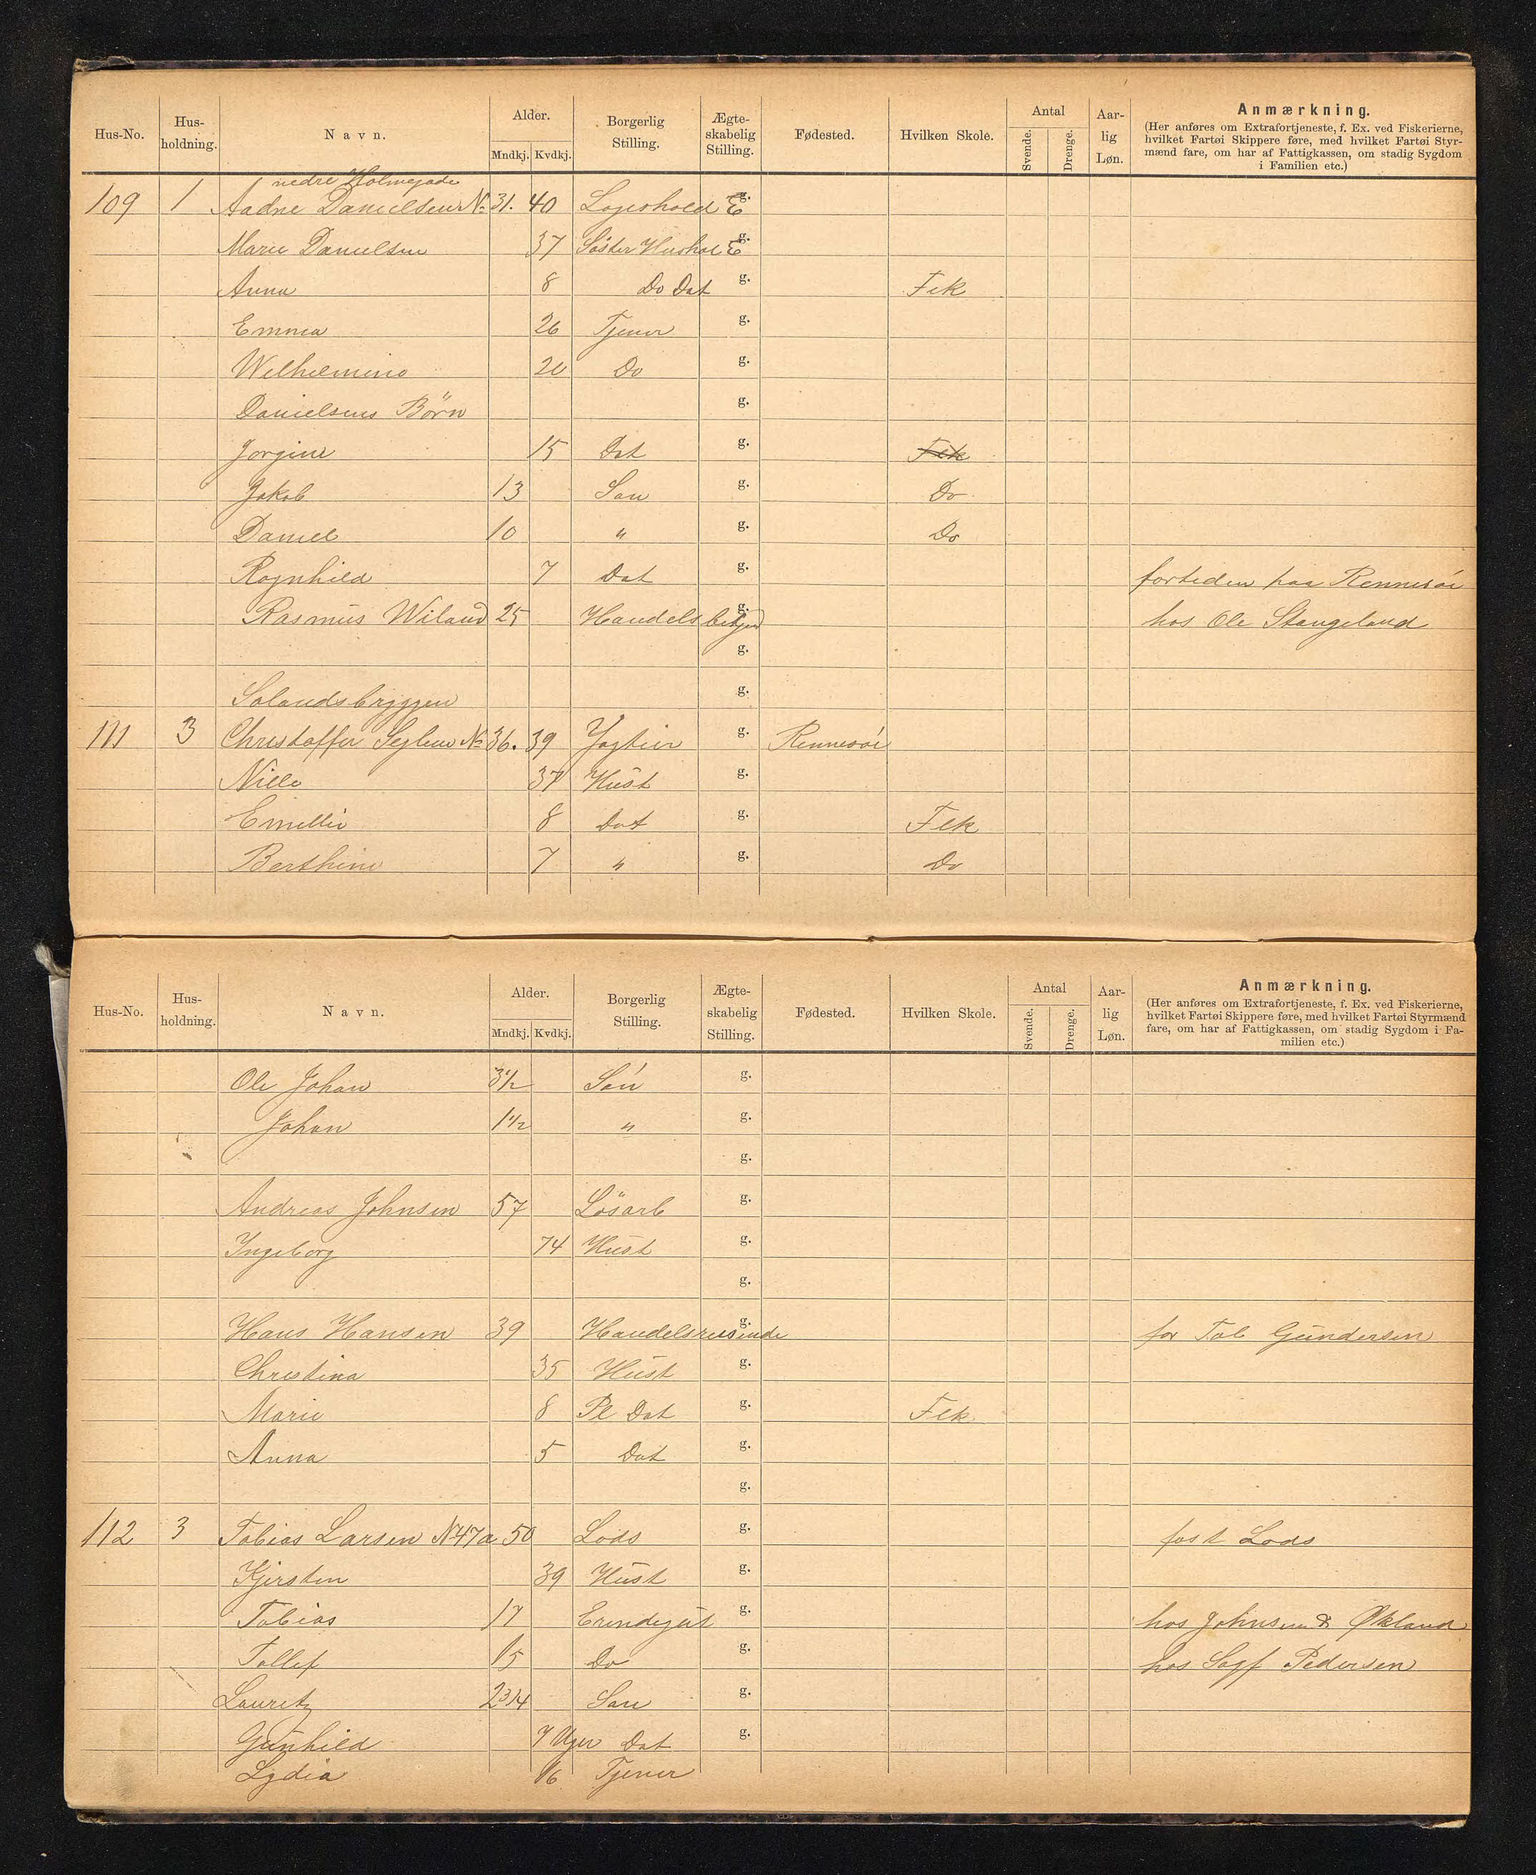 Hus-No. Hus-holdning. Navn. Alder. Mndkj. Kvdkj. Borgerlig Stilling. Ægte-skabelig Stilling. Fødested. Hvilken Skole. Antal Svende. Drenge. Aar-lig Løn. Anmærkning.
(Her anføres om Extrafortjeneste, f. Ex. ved Fiskerierne,
hvilket Fartøi Skippere føre, med hvilket Fartøi Styr-
mænd fare, om har af Fattigkassen, om stadig Sygdom
i Familien etc.)
nedre Holmegade
109 1 Aadne Danielsen No 31. 40 Logishold g. E
Marie Danielsen 37 Söster Hushol g. E
Anna 8 Do Dat g. Flk
Emma 26 Tjener g.
Wilhelmine 20 Do g.
Danielsens Börn g.
Jorgine 15 Dat g. Flk
Jakob 13 Sön g. Do
Daniel 10 " g. Do
Ragnhild 7 Dat g. fortiden paa Rennesöi
Rasmus Wiland 25 Handelsbetjend g. hos Ole Stangeland
g.
Solandsbryggen g.
111 3 Christoffer Sejlem No 36. 39 Jagtier g. Rennesöi
Nille 37 Hust g.
Emellie 8 Dat g. Flk
Berthine 7 " g. Do
Hus-No. Hus-holdning. Navn. Alder. Mndkj. Kvdkj. Borgerlig Stilling. Ægte-skabelig Stilling. Fødested. Hvilken Skole. Antal Svende. Drenge. Aar-lig Løn. Anmærkning.
(Her anføres om Extrafortjeneste, f. Ex. ved Fiskerierne,
hvilket Fartøi Skippere føre, med hvilket Fartøi Styrmænd
fare, om har af Fattigkassen, om stadig Sygdom i Fa-
milien etc.)
Ole Johan 3 1/2 Sön g.
Johan 1 1/2 " g.
g.
Andreas Johnsen 57 Lösarb g.
Ingeborg 74 Hust g.
g.
Hans Hansen 39 Handelsreisende g. for Tob Gundersen
Christina 35 Hust g.
Marie 8 Pl Dat g. Flk
Anna 5 Dat g.
g.
112 3 Tobias Larsen No 47a 50 Lods g. fast Lods
Kjersten 39 Hust g.
Tobias 17 Erindsgut g. hos Johnsen & Økland
Tollef 15 Do g. hos Sagf Pedersen
Lauritz 2 3/4 Sön g.
Gunhild 7 Uger Dat g.
Lydia 16 Tjener